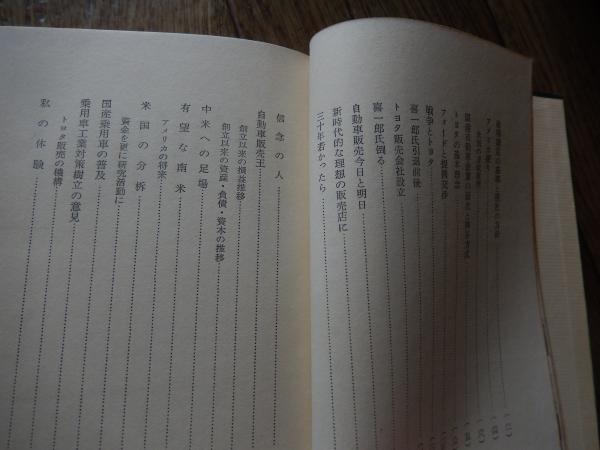 アメリカ便り
トヨタの基本理念
フォードと提携交渉
戦争とトヨタ
喜一郎氏引退前後
トヨタ販売会社設立
喜一郎氏倒る
自動車販売今日と明日
新時代的な理想の販売店に
三十年若かったら
信念の人
自動車販売王
創立以来の損益推移
創立以来の資産・負債・資本の推移
中米への足場
有望な南米
アメリカの将来
米国の分析
資金を更に研究活動に
国産乗用車の普及
乗用車工業対策樹立の意見
トヨタ販売の機構
私の体験